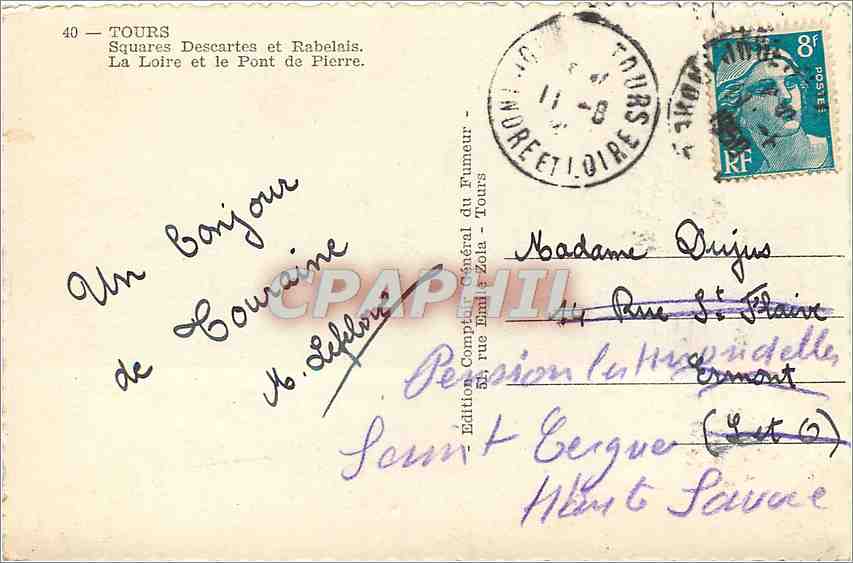 40 — TOURS
Squares Descartes et Rabelais.
La Loire et le Pont de Pierre.
TOURS
11 -8
INDRE ET LOIRE
8F
POSTES
RF
Un bonjour
de Touraine
M. Lefebvre
- Edition Comptoir Général du Fumeur -
51, rue Emile Zola - Tours
CPAPHIL
Madame Dujus
14 Rue St Flaive
Ermont
(S et O)
Pension les Hirondelles
Saint Cergues
Haute Savoie